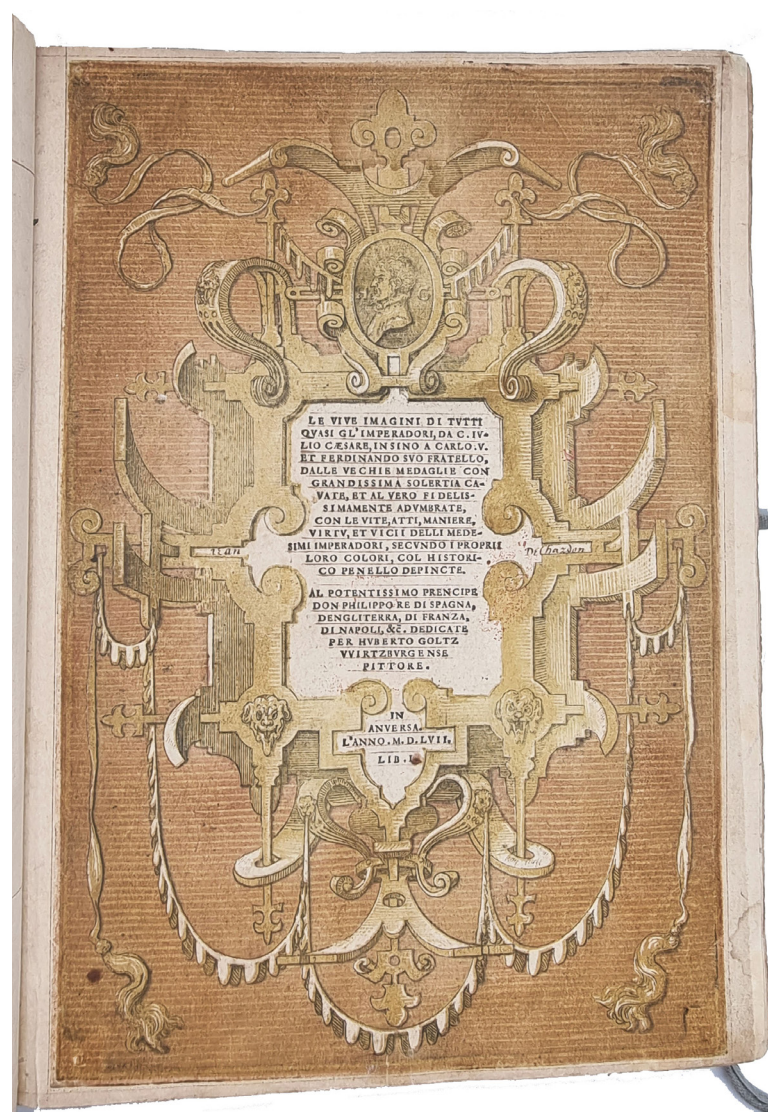 LE VIVE IMAGINI DI TVTTI
QVASI GL'IMPERADORI, DA C. IV-
LIO CÆSARE, IN SINO A CARLO. V.
ET FERDINANDO SVO FRATELLO,
DALLE VECHIE MEDAGLIE CON
GRANDISSIMA SOLERTIA CA-
VATE, ET AL VERO FIDELIS-
SIMAMENTE ADVMBRATE,
CON LE VITE, ATTI, MANIERE,
VIRTV, ET VICII DELLI MEDE-
SIMI IMPERADORI, SECVNDO I PROPRII
LORO COLORI, COL HISTORI-
CO PENELLO DEPINCTE.
AL POTENTISSIMO PRENCIPE
DON PHILIPPO RE DI SPAGNA,
DENGLITERRA, DI FRANZA,
DI NAPOLI, &c̄. DEDICATE
PER HVBERTO GOLTZ
VVIRTZBVRGENSE
PITTORE.
IN
ANVERSA.
L'ANNO. M. D. LVII.
LIB. I.